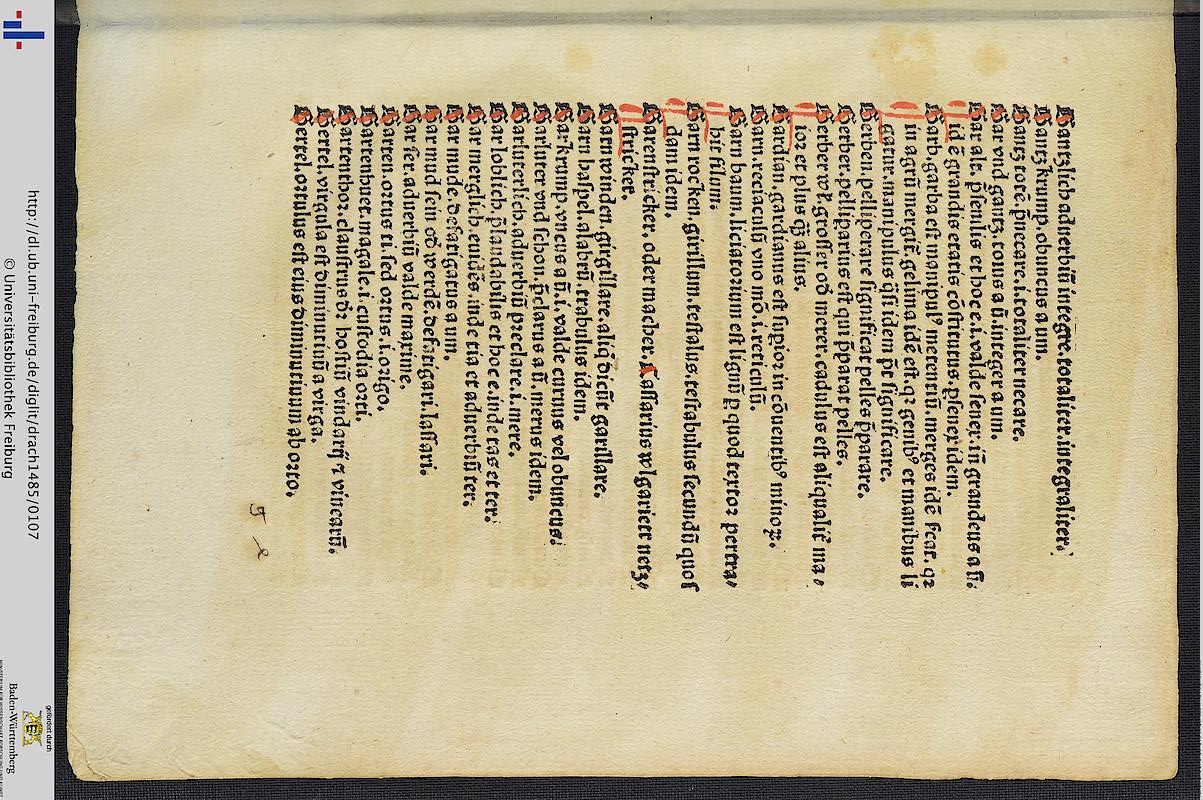 Gantzlich aduerbiū integre. totaliter. integraliter.
Gantz krump. obuncus a um.
Gantz totē. p̄necare. i. totaliter necare.
Gar vnd gantz. totus a ū. integer a um.
Gar alt. p̄senilis et hoc e. i. valde senex. iñ grandeus a ū.
id ē grandis etatis cōstitutus. p̄senex idem.
Garb. garba est manipul9 metentiū. merges idē fcat. qꝛ
in agrū mergit. gelima idē est. qꝛ genib9 et manibus li
gatur. manipulus q̄si idem pt̄ significare.
Gerben. pelliperare significat pelles p̄parare.
Gerber. pelliparius est qui p̄parat pelles.
Gerber vł. grosser od̄ merer. cadulus est aliqualit̄ ma/
ior et plus q̄ȝ alius.
Gardian. gardianus est supior in cōuentib9 minoꝝ.
Garn. retiaculū vno mō. i. reticulū.
Garn baum. liciatorium est lignū ꝑ quod textor pertra/
hit filum.
Garn rocken. girillum. testalus. testabulus secundū quos
dam idem.
Garenstricker. oder macher. Cassarius wlgariter netz/
stricker.
Garn winden. girgillare. aliq̄ dicūt garillare.
Garn haspel. alabrū. trabulus idem.
Gar krump. vncus a ū. i. valde curuus vel obuncus.
Gar luter vnd schon. p̄clarus a ū. merus idem.
Gar luterlich. aduerbiū preclare. i. mere.
Gar loblich. p̄laudabilis et hoc e. inde tas et ter.
Gar merglich. euidēs. inde tia et aduerbiū ter.
Gar mude. defatigatus a um.
Gar mud sein od̄ werdē. defatigari. lassari.
Gar ser. aduerbiū valde maxime.
Garten. ortus ti. sed ortus. i. origo.
Gartenhuet. magale. i. custodia orti.
Gartenthor. claustrus dꝛ hostiū viridarij ⁊ vinearū.
Gertel. virgula est diminutiuū a virga.
Gertel. ortulus est eius diminutiuum ab orto.
http://dl.ub.uni-freiburg.de/diglit/drach1485/0107
© Universitätsbibliothek Freiburg
gefördert durch
Baden-Württemberg